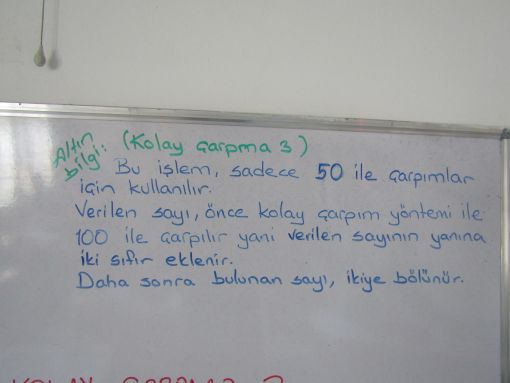 Altın bilgi: (Kolay çarpma 3)
Bu işlem, sadece 50 ile çarpımlar
için kullanılır.
Verilen sayı, önce kolay çarpım yöntemi ile
100 ile çarpılır yani verilen sayının yanına
iki sıfır eklenir.
Daha sonra bulunan sayı, ikiye bölünür.